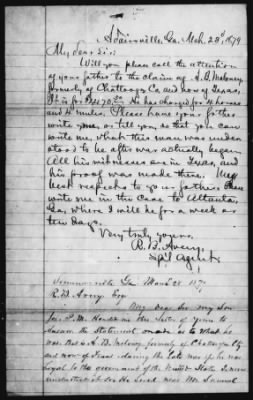 Adairsville, Ga. Mch. 20th, 1879
My dear Sir:
Will you please call the attention
of your father to the claim of A. B. Maloney,
formerly of Chattooga Co and now of Texas.
It is for $ He has charged for 4 horses
and 4 mules. Please have your father
write me, or tell you, so that you can
write me, what this man was under-
stood to be after war actually began
All his witnesses are in Texas, and
his proof was made there. My
best respects to your father. Please
write me in the case to Atlanta,
Ga. where I will be for a week or
ten days.
Very truly yours,
R. B. Avery,
Spl Agent
Summerville Ga March 28 1879
R. B. Avery Esq
My Dear Sir my Son
has the letter of yours to
the Statement as to what he
was A. B. formerly of Chattooga Cty
and now of Texas during the late war if he was
loyal to the government of the United States
understood it so. He lived near Mr Samuel